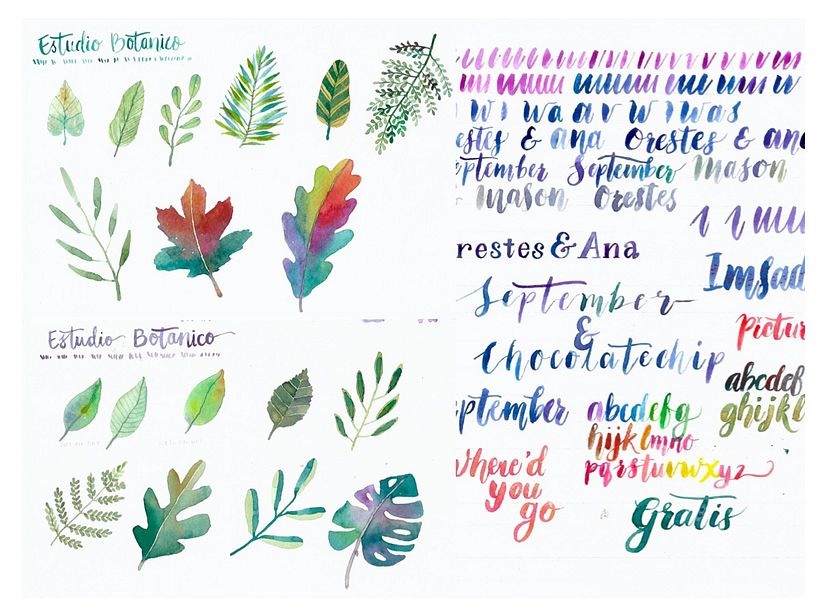 Estudio Botanico
Estudio Botanico
w i wa a v w i was
estes & ana Orestes & ana
eptember September Mason
mason Orestes
restes & Ana
Imsad
September
&
Chocolatechip
pictur
abcdef
ghijkl
eptember
abcdefg
hijklmno
pqrstuvwxyz
where'd
you
go
Gratis